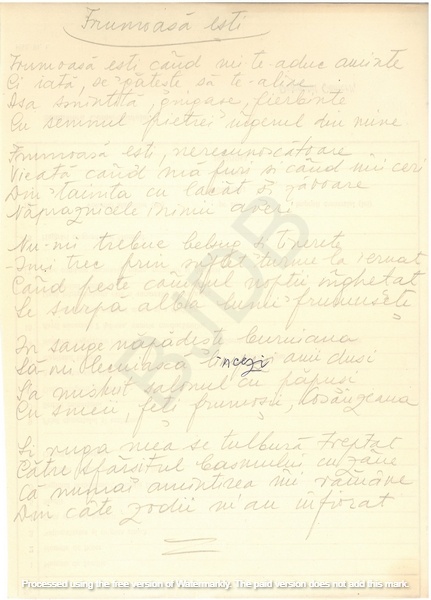 Frumoasă ești
Frumoasă ești când mi te-aduc aminte
Ci iată, se pătește să te-aline
Așa smintită, gingașe, fierbinte
Cu semnul pietrei îngerul din mine
Frumoasă ești, nerecunoscătoare
Vieață când mă furi și când îmi ceri
Din taința cu lacăt și zăvoare
Năpraznicele inimii averi
Nu-mi trebuie belșug și tinerețe
Îmi trec prin suflet turme la iernat
Când peste câmpul nopții înghețat
Se surpă alba lunii frumusețe
În sânge năpădește buruiana
Să nu trăiască încezi anii duși
S-a mistuit salonul cu păpuși
Cu smei, feți frumoși, cosânzeana
Și ruga mea se tulbură treptat
Către sfârșitul basmului cu zâne
Că numai amintirea îmi rămâne
Din câte zodii m-au înfiorat
BJDB
Processed using the free version of Watermarkly. The paid version does not add this mark.